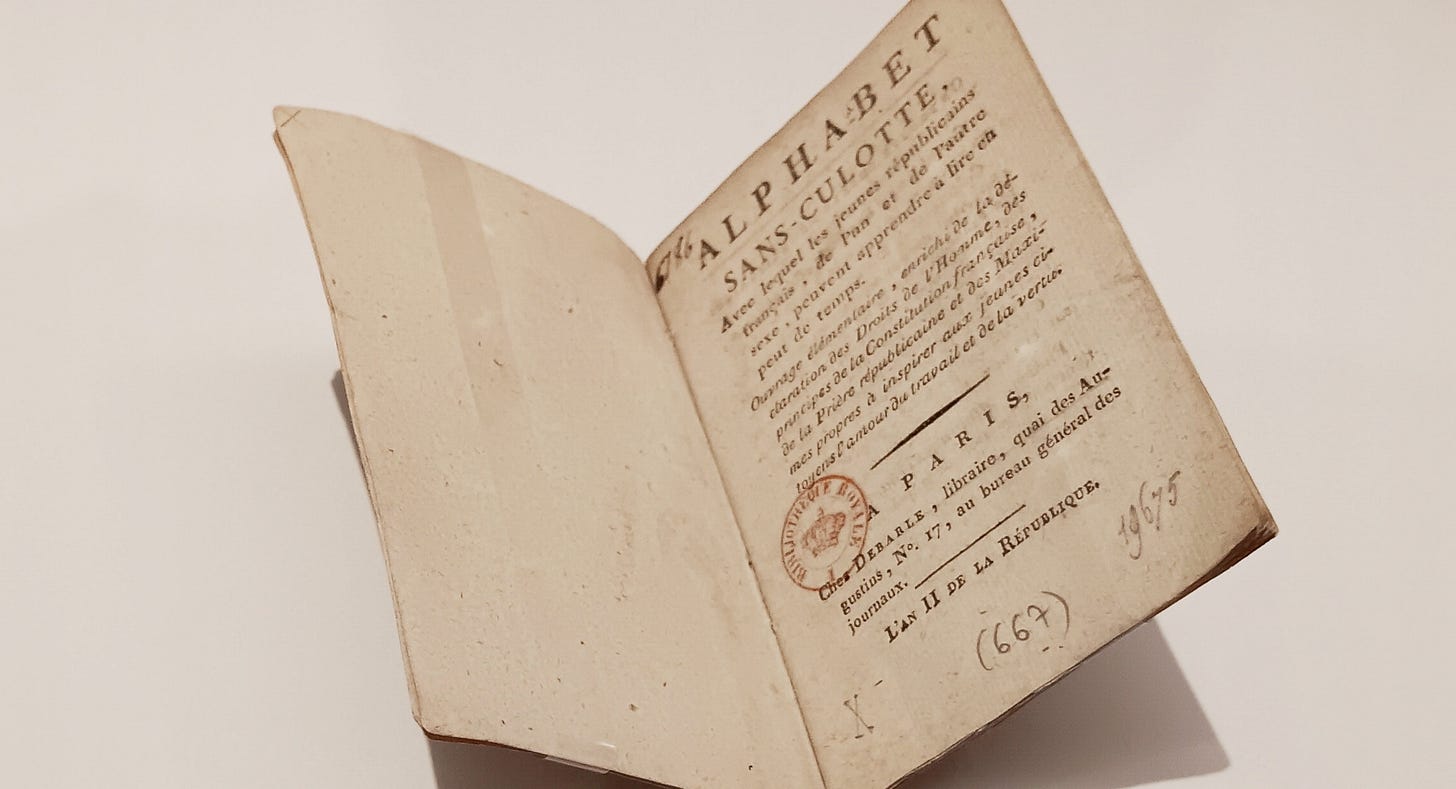 6786
ALPHABET
SANS-CULOTTE,
Avec lequel les jeunes républicains
français, de l'an et de l'autre
sexe, peuvent apprendre à lire en
peut de temps.
Ouvrage élémentaire, enrichi de la dé-
claration des Droits de l'Homme, des
principes de la Constitution française,
de la Prière républicaine et des Maxi-
mes propres à inspirer aux jeunes ci-
toyens l'amour du travail et de la vertu.
A PARIS,
Chez DEBARLE, libraire, quai des Au-
gustins, No. 17, au bureau général des
journaux.
L'AN II DE LA RÉPUBLIQUE.
BIBLIOTHEQUE ROYALE
19675
(667)
X